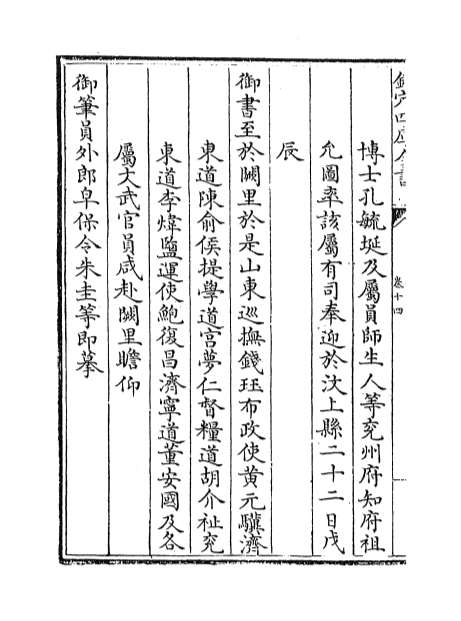 欽定四庫全書
卷十四
博士孔毓埏及屬員師生人等兖州府知府祖
允圖率該屬有司奉迎於汶上縣二十二日戊
辰
御書至於闕里於是山東巡撫錢珏布政使黄元驥濟
東道陳俞侯提學道宫夢仁督糧道胡介祉兖
東道李煒鹽運使鮑復昌濟寧道董安國及各
屬文武官員咸赴闕里瞻仰
御筆員外郎皁保令朱圭等即摹